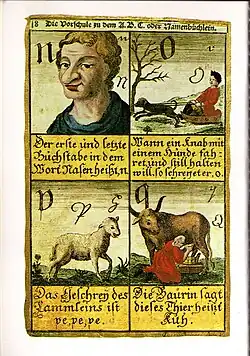 18 Die Vorschule zu dem A.B.C. oder Namenbüchlein.
N n n
O O
Der erste und letzte
Buchstabe in dem
Wort Nasen heißt, n
Wann ein Knab mit
einem Hunde fäh-
ret, und still halten
will, so schreyet er, o.
P p P
q Q
Das Geschrey des
Lammleins ist
pe, pe, pe.
Die Baurin sagt
dieses Thier heißt
Kuh.